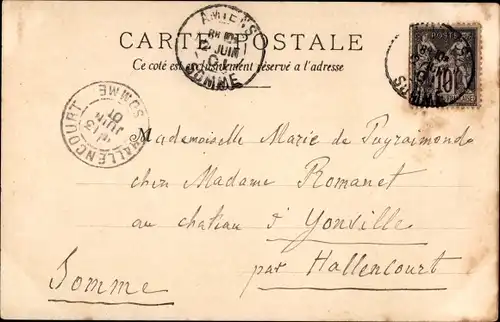 CARTE POSTALE
Ce coté est exclusivement réservé a l'adresse
AMIENS
12 JUIN
SOMME
10
SOMME
HALLENCOURT SOMME
13
JUIN
01
Mademoiselle Marie de Puyraimond
chez Madame Romanet
au chateau d'Yonville
par Hallencourt
Somme